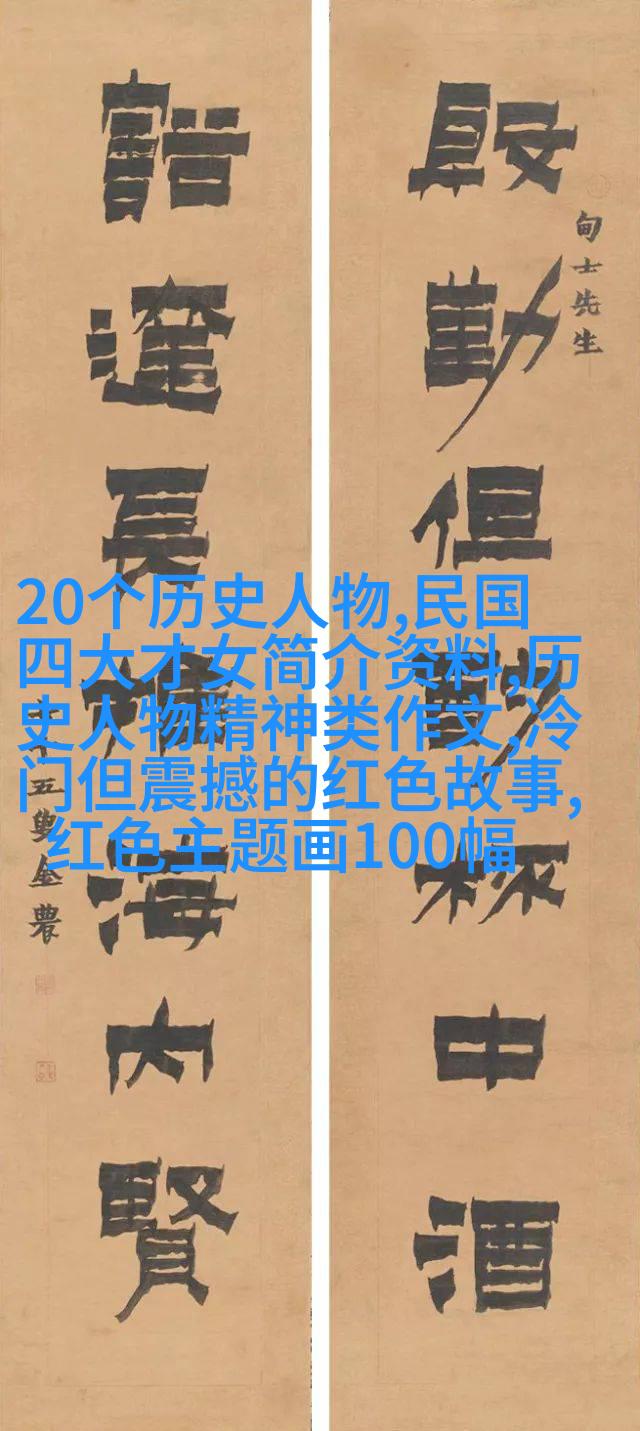 甸士先生
殷勤但酌杯中酒
豁達長推海内賢
七十五叟金農
20个历史人物,民国
四大才女简介资料,历
史人物精神类作文,冷
门但震撼的红色故事,
红色主题画100幅